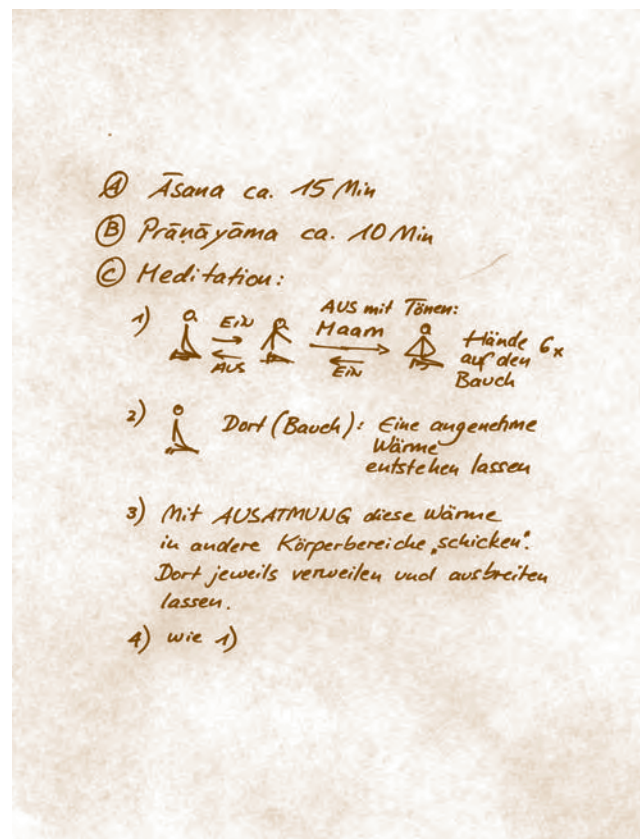 A Āsana ca. 15 Min
B Prāṇāyāma ca. 10 Min
C Meditation:
1) EIN AUS AUS mit Tönen: Maam EIN Hände auf den Bauch 6x
2) Dort (Bauch): Eine angenehme
Wärme
entstehen lassen
3) Mit AUSATMUNG diese Wärme
in andere Körperbereiche „schicken“.
Dort jeweils verweilen und ausbreiten
lassen.
4) wie 1)